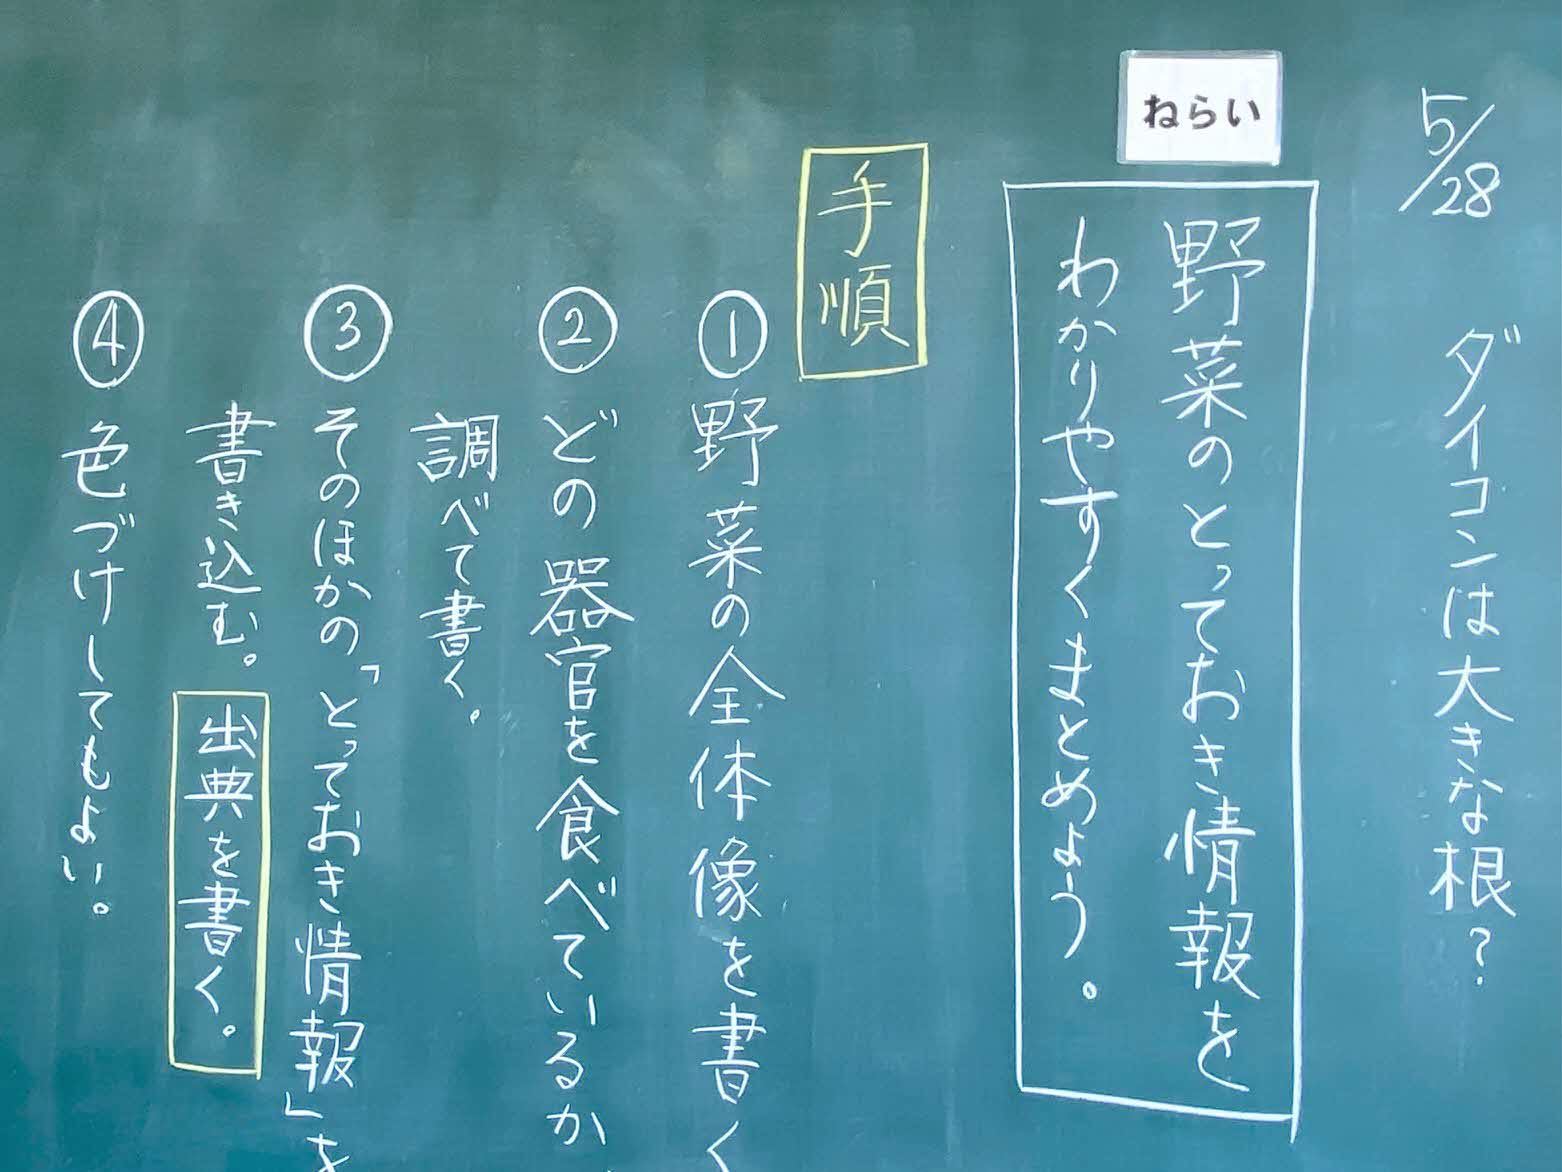 5/28 ダイコンは大きな根?
ねらい
野菜のとっておき情報を
わかりやすくまとめよう。
手順
①野菜の全体像を書く
②どの器官を食べているか
調べて書く。
③そのほかの「とっておき情報」を
書き込む。出典を書く。
④色づけしてもよい。